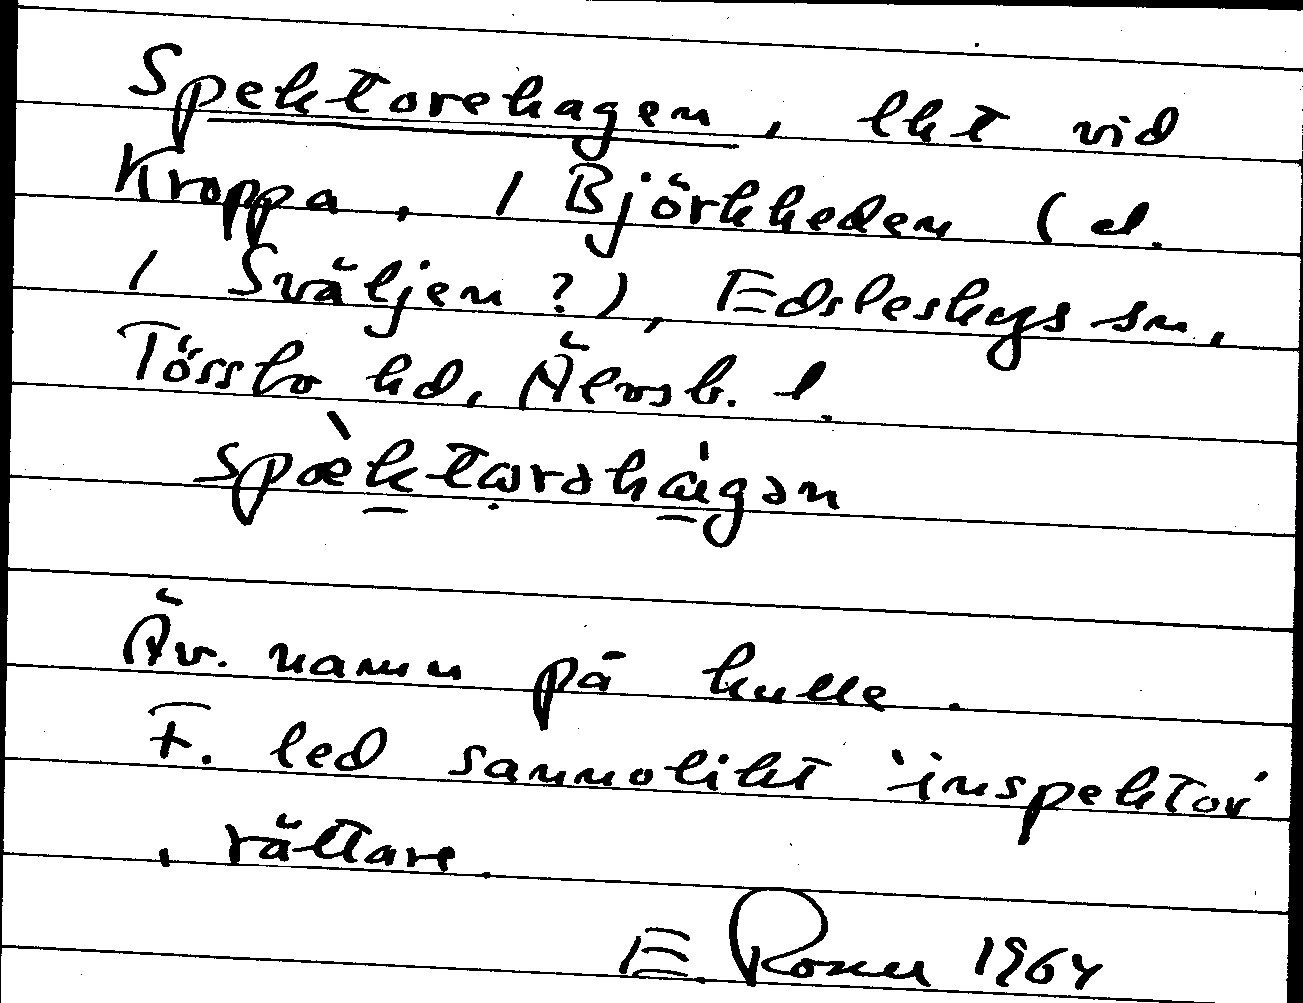 Spektorehagen, lht vid
Kroppa, 1 Björkheden (el.
1 Sväljen?), Edsleskogs sn,
Tössbo hd, Älvsb. l.
spæ̀ktωrəhágən
Äv. namn på kulle.
F. led sannolikt 'inspektor'
, rättare.
E. Rosell 1964